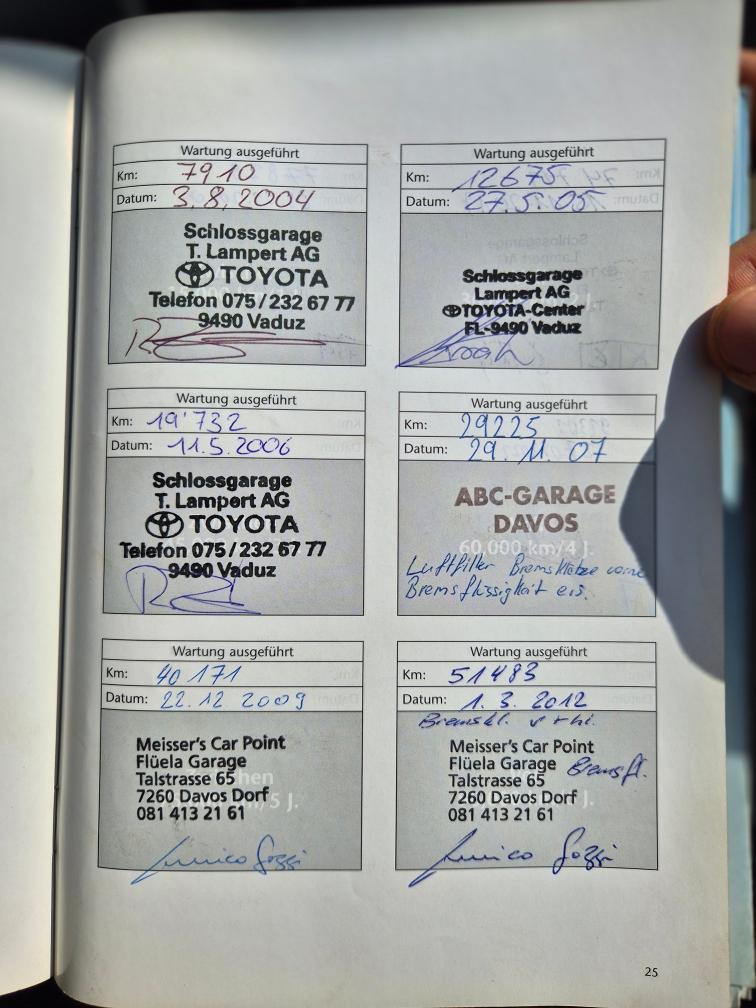 Wartung ausgeführt
Km: 7910
Datum: 3.8.2004
Schlossgarage
T. Lampert AG
TOYOTA
Telefon 075/232 67 77
9490 Vaduz
Wartung ausgeführt
Km: 12675
Datum: 27.5.05
Schlossgarage
Lampert AG
TOYOTA-Center
FL-9490 Vaduz
Wartung ausgeführt
Km: 19'732
Datum: 11.5.2006
Schlossgarage
T. Lampert AG
TOYOTA
Telefon 075/232 67 77
9490 Vaduz
Wartung ausgeführt
Km: 29225
Datum: 29. 11. 07
ABC-GARAGE
DAVOS
60,000 km/4 J.
Luftfilter Bremsklötze vorne
Bremsflüssigkeit ers.
Wartung ausgeführt
Km: 40 171
Datum: 22.12.2009
Meisser's Car Point
Flüela Garage
Talstrasse 65
7260 Davos Dorf
081 413 21 61
Wartung ausgeführt
Km: 51483
Datum: 1. 3. 2012
Bremskl. v + hi.
Meisser's Car Point
Flüela Garage
Talstrasse 65
Bremsfl.
7260 Davos Dorf
081 413 21 61
25